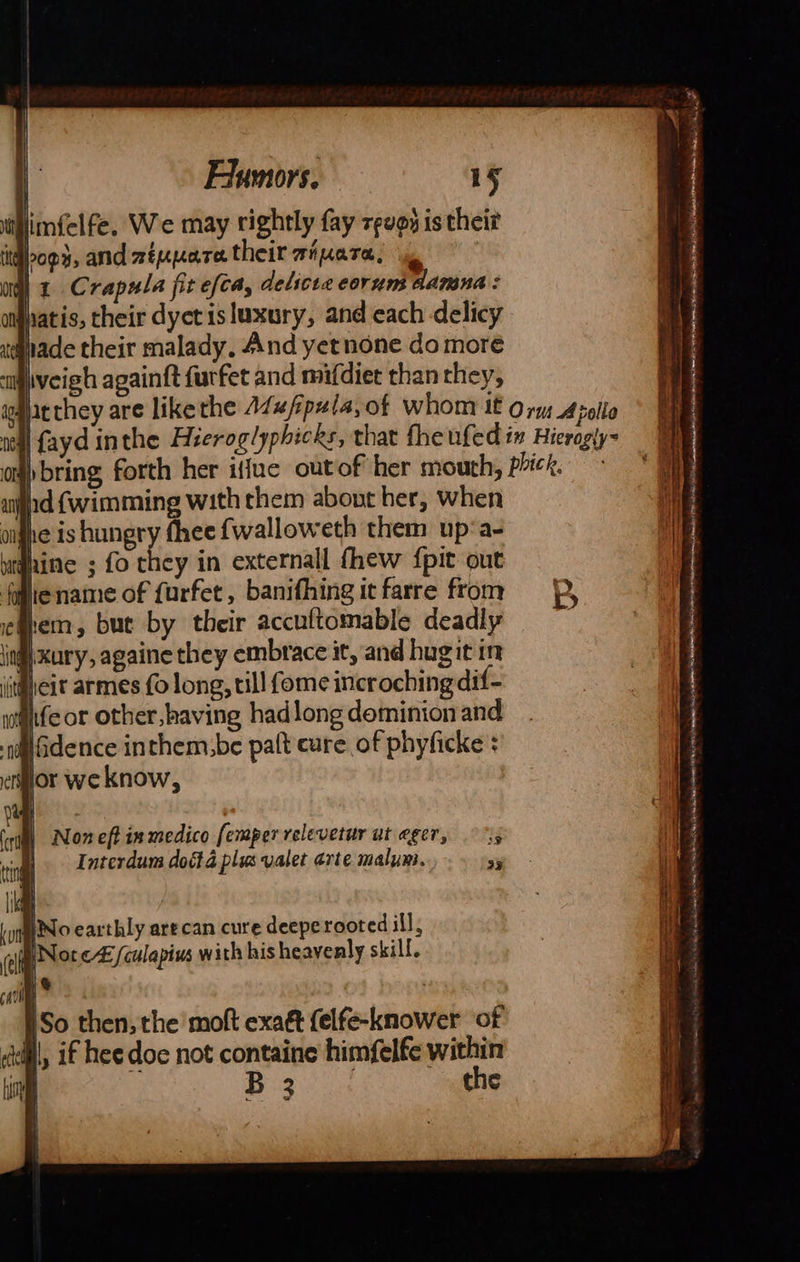 Humors. 15
imſelfe. We may rightly ſay τρυφὴ is their
and πέμματα their πήματα,
1 Crapula fit eſca, deliciæ eorum damna:
atis, their dyet is luxury, and each delicy
ade their malady. And yet none do more
veigh againſt ſurfet and miſdiet than they,
they are like the Muſipula, of whom it
Orus Apollo
ſayd in the Hieroglyphicks, that ſhe uſed
in Hierogly-
bring forth her iſſue out of her mouth,
phick.
d ſwimming with them about her, when
e is hungry ſhee ſwalloweth them up a-
aine ; ſo they in externall ſhew ſpit out
e name of ſurfet, baniſhing it farre from
B
em, but by their accuſtomable deadly
xury, againe they embrace it, and hug it in
eir armes ſo long, till ſome incroching diſ-
or other, having had long dominion and
ſidence in them, be paſt cure of phyſicke :
or we know,
Non eſt in medico ſemper relevetur ut æger, ,,
Interdum doctâ plus valet arte malum. ,,
No earthly art can cure deepe rooted ill,
Nor Æſculapius with his heavenly skill.
So then, the moſt exact ſelfe-knower of
l, if hee doe not containe himſelfe within
B 3 the